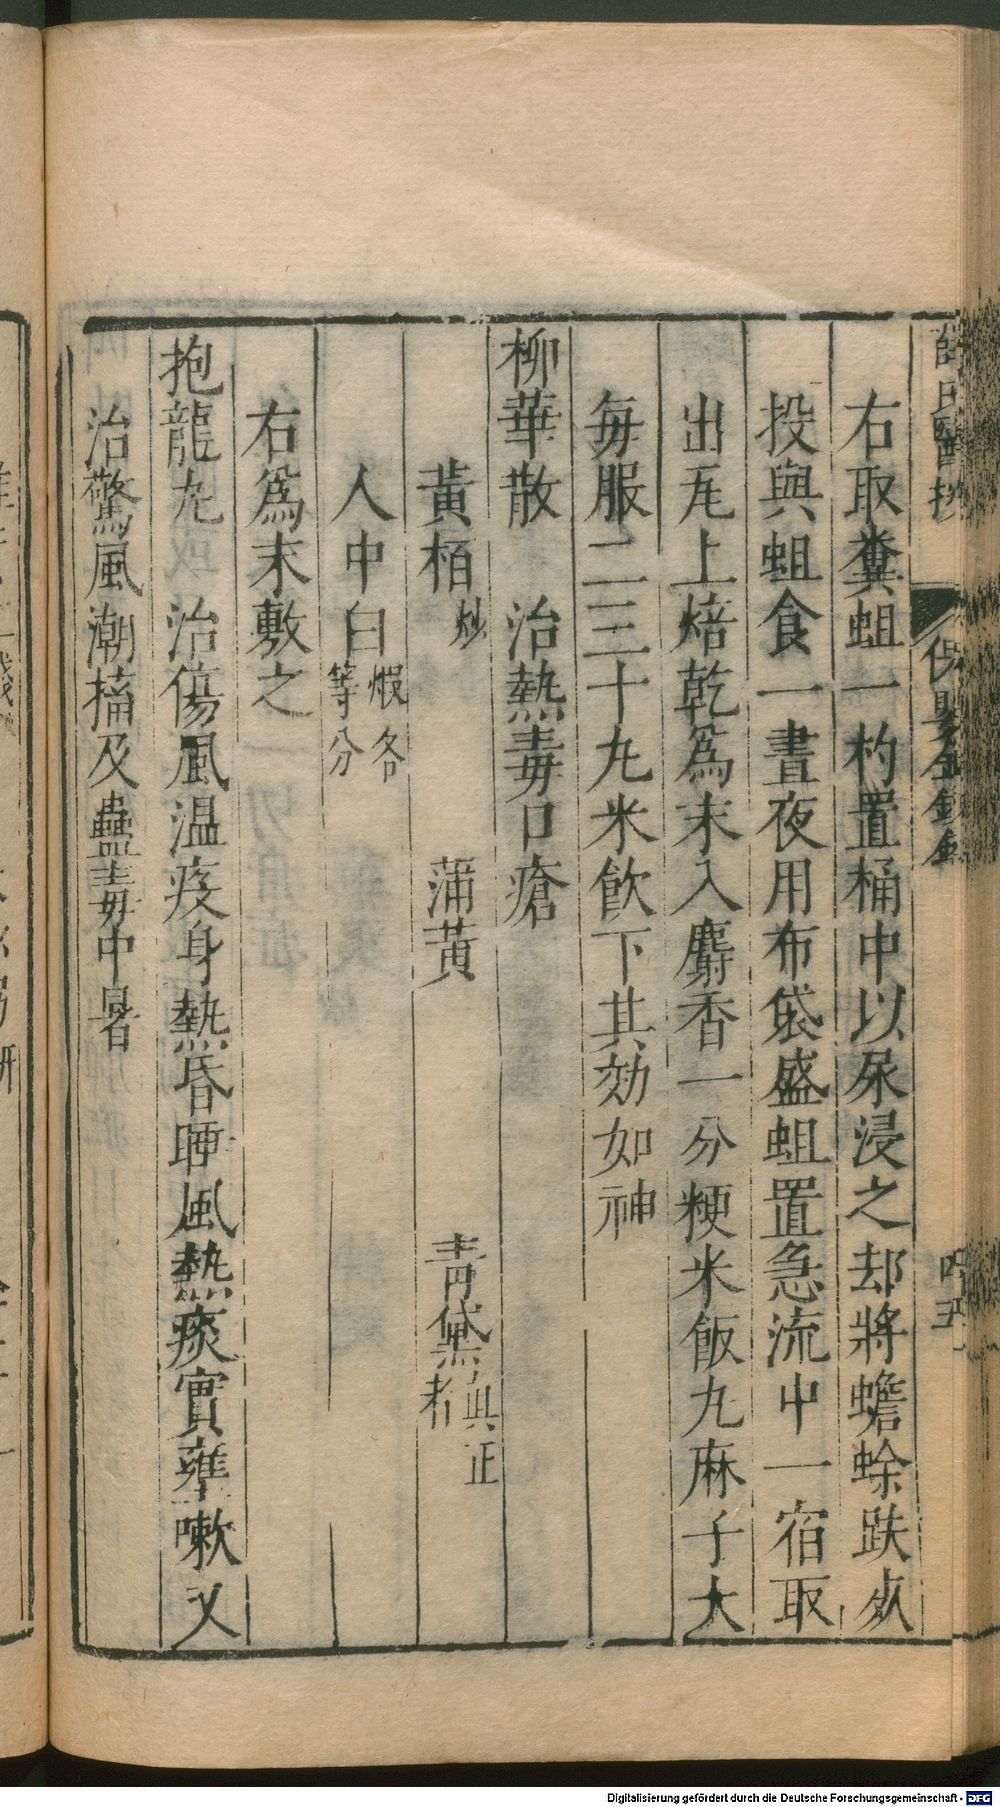 薛氏醫按
保嬰金鏡錄
四五
右取糞蛆一杓置桶中以尿浸之却將蟾蜍跌死
投與蛆食一晝夜用布袋盛蛆置急流中一宿取
出瓦上焙乾爲末入麝香一分粳米飯丸麻子大
每服二三十丸米飲下其効如神
柳華散 治熱毒口瘡
黃栢炒 蒲黃 青黛真正者
人中白煆各等分
右爲末敷之
抱龍丸 治傷風温疫身熱昏睡風熱痰實壅嗽又
治驚風潮搐及蠱毒中暑
Digitalisierung gefördert durch die Deutsche Forschungsgemeinschaft - DFG